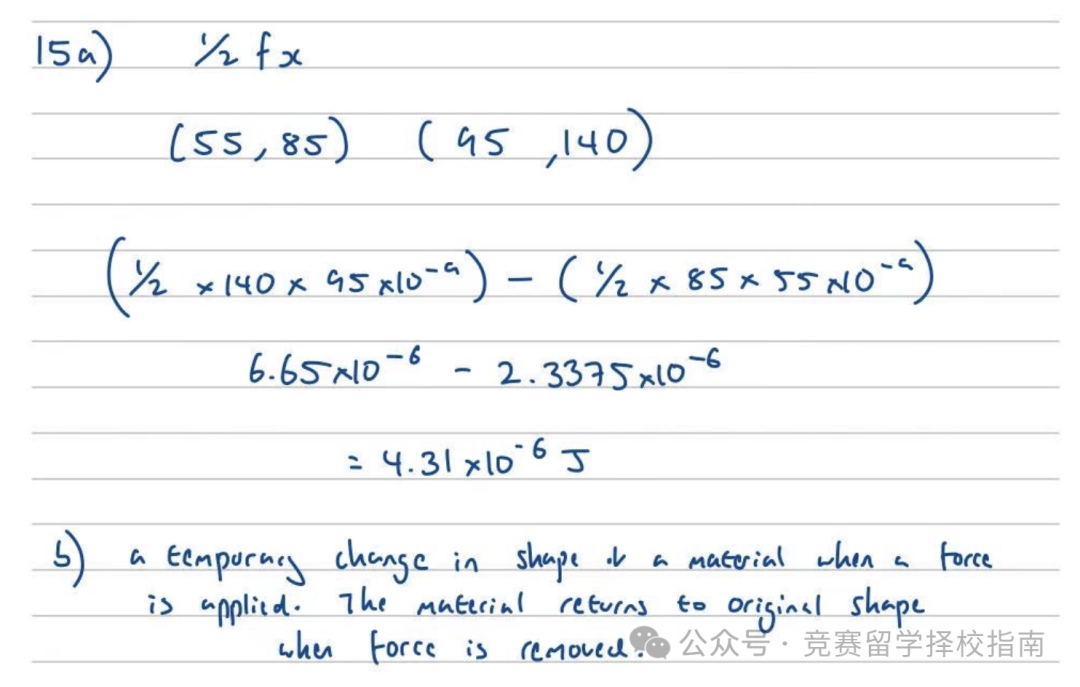 15a) ½ fx
(55, 85) (95, 140)
(½ × 140 × 95 × 10⁻⁹) − (½ × 85 × 55 × 10⁻⁹)
6.65 × 10⁻⁶ − 2.3375 × 10⁻⁶
= 4.31 × 10⁻⁶ J
b) a temporary change in shape of a material when a force
is applied. The material returns to original shape
when force is removed.
公众号 · 竞赛留学择校指南